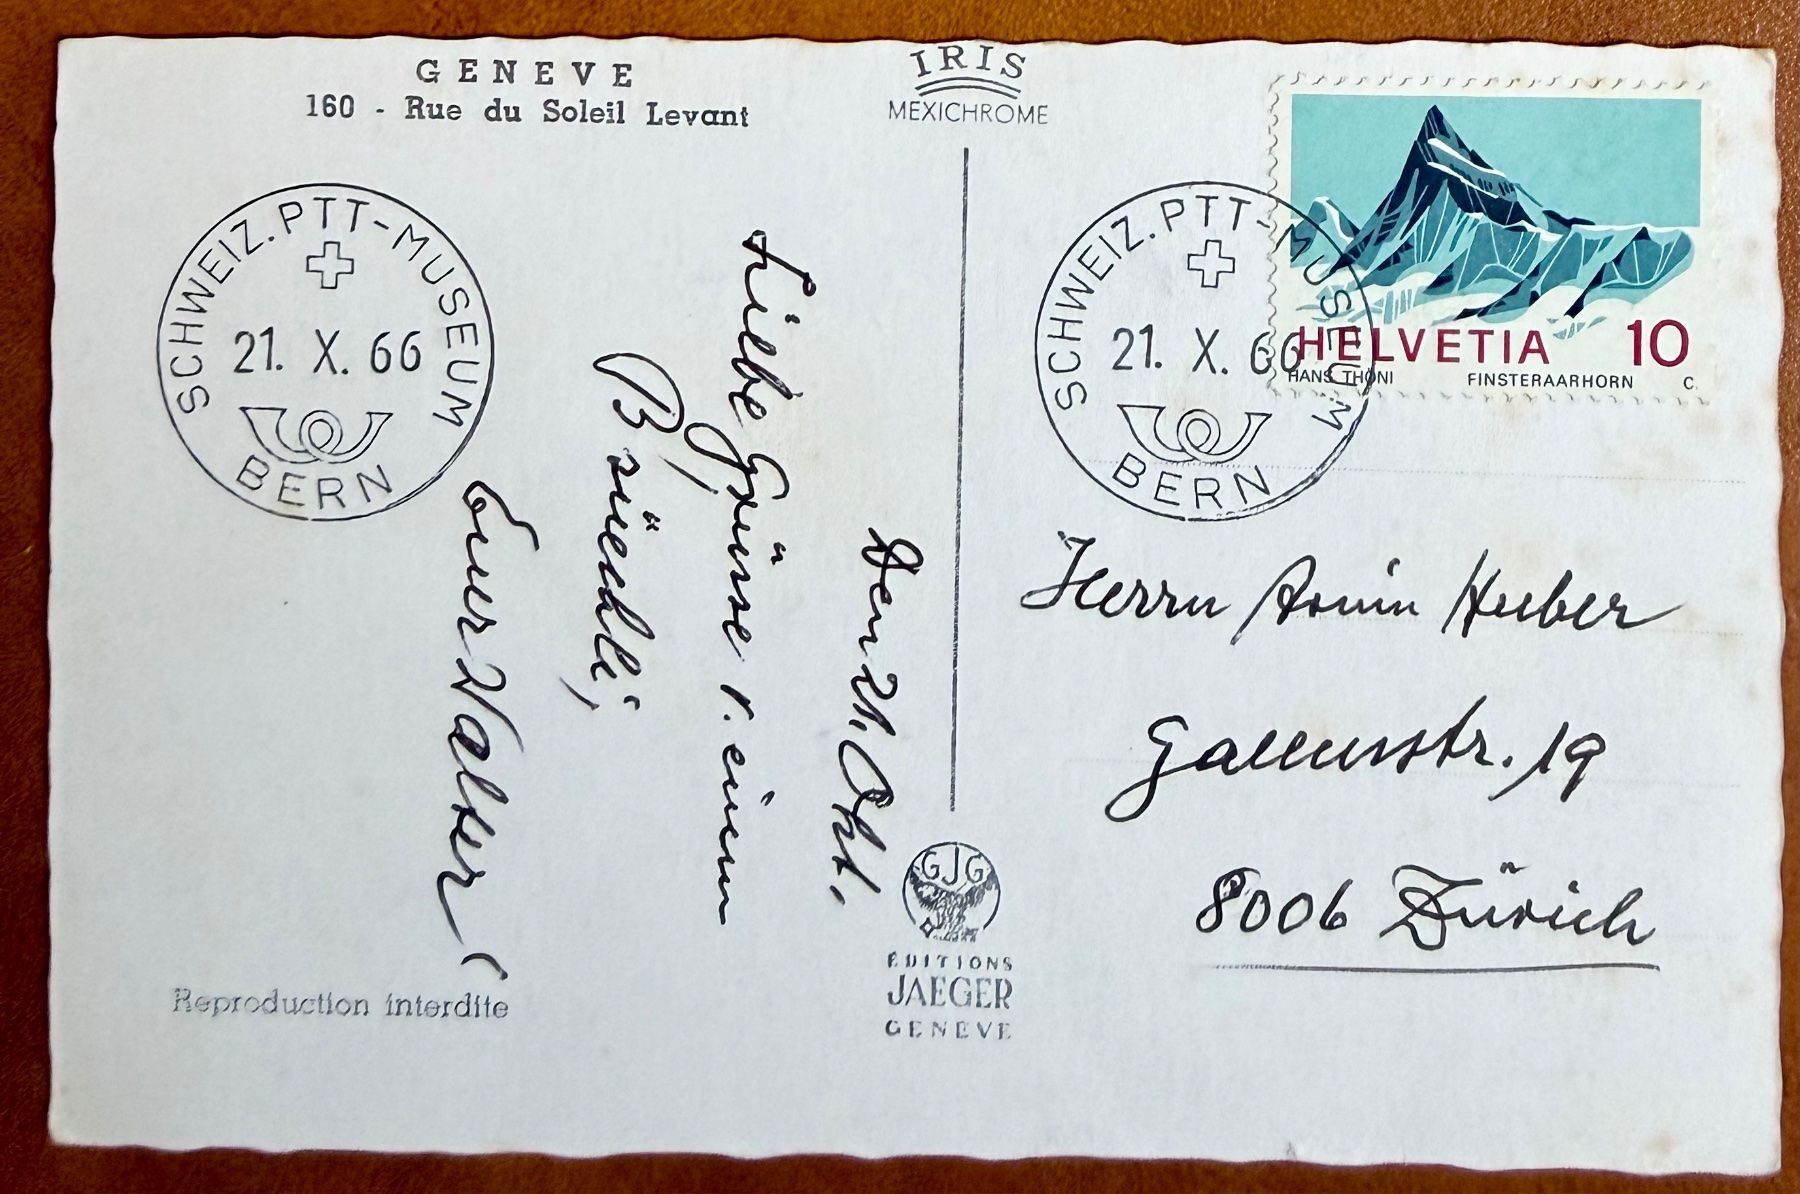 GENEVE
160 - Rue du Soleil Levant
IRIS
MEXICHROME
SCHWEIZ. PTT-MUSEUM
21. X. 66
BERN
SCHWEIZ. PTT-MUSEUM
21. X. 66
BERN
HELVETIA 10
HANS THÖNI FINSTERAARHORN C.
Den 21. Okt.
Liebe Grüsse v. einem
Bsüechli,
Euer Walter
Herrn Armin Huber
Gallusstr. 19
8006 Zürich
GJG
ÉDITIONS
JAEGER
GENÈVE
Reproduction interdite